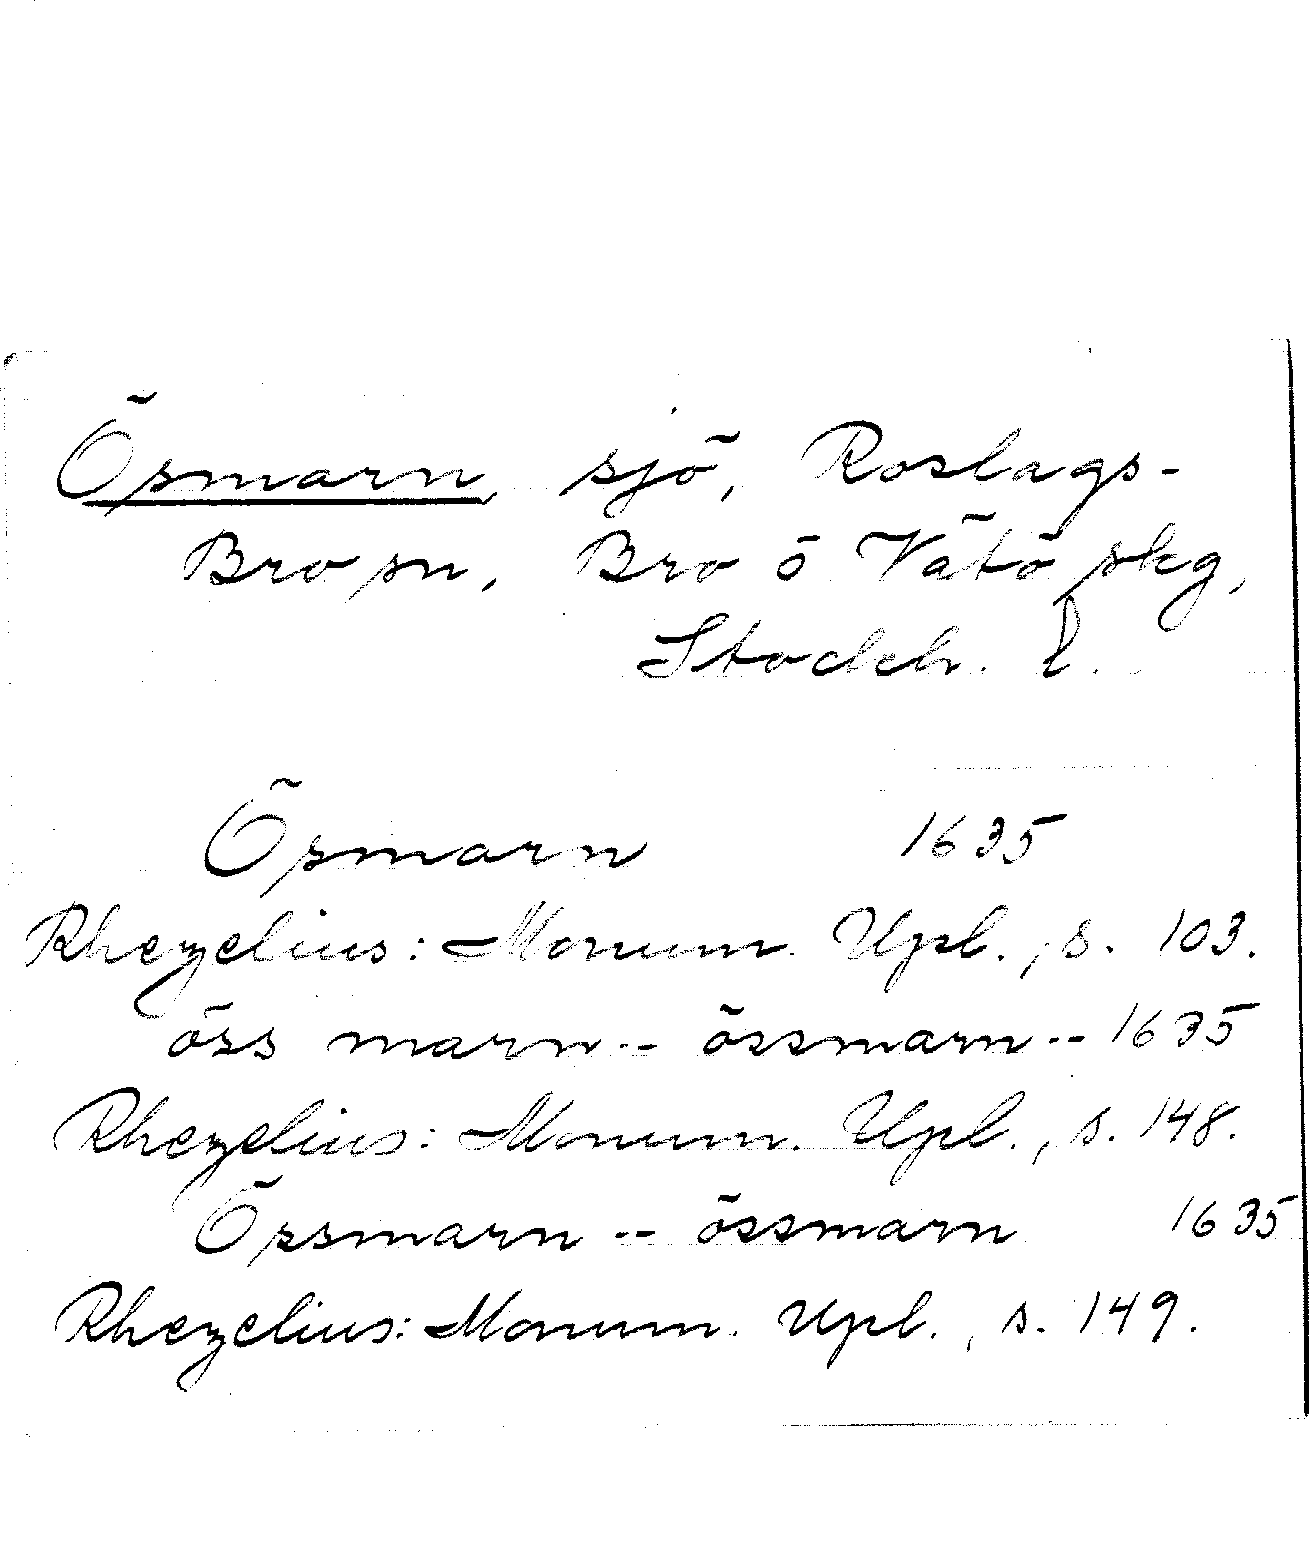 Ösmarn, sjö, Roslags-
Bro sn, Bro o Vätö skg,
Stockh. l.
Ösmarn 1635
Rhezelius: Monum. Upl., s. 103.
öss marn -- össmarn -- 1635
Rhezelius: Monum. Upl., s. 148.
Össmarn -- össmarn 1635
Rhezelius: Monum. Upl., s. 149.